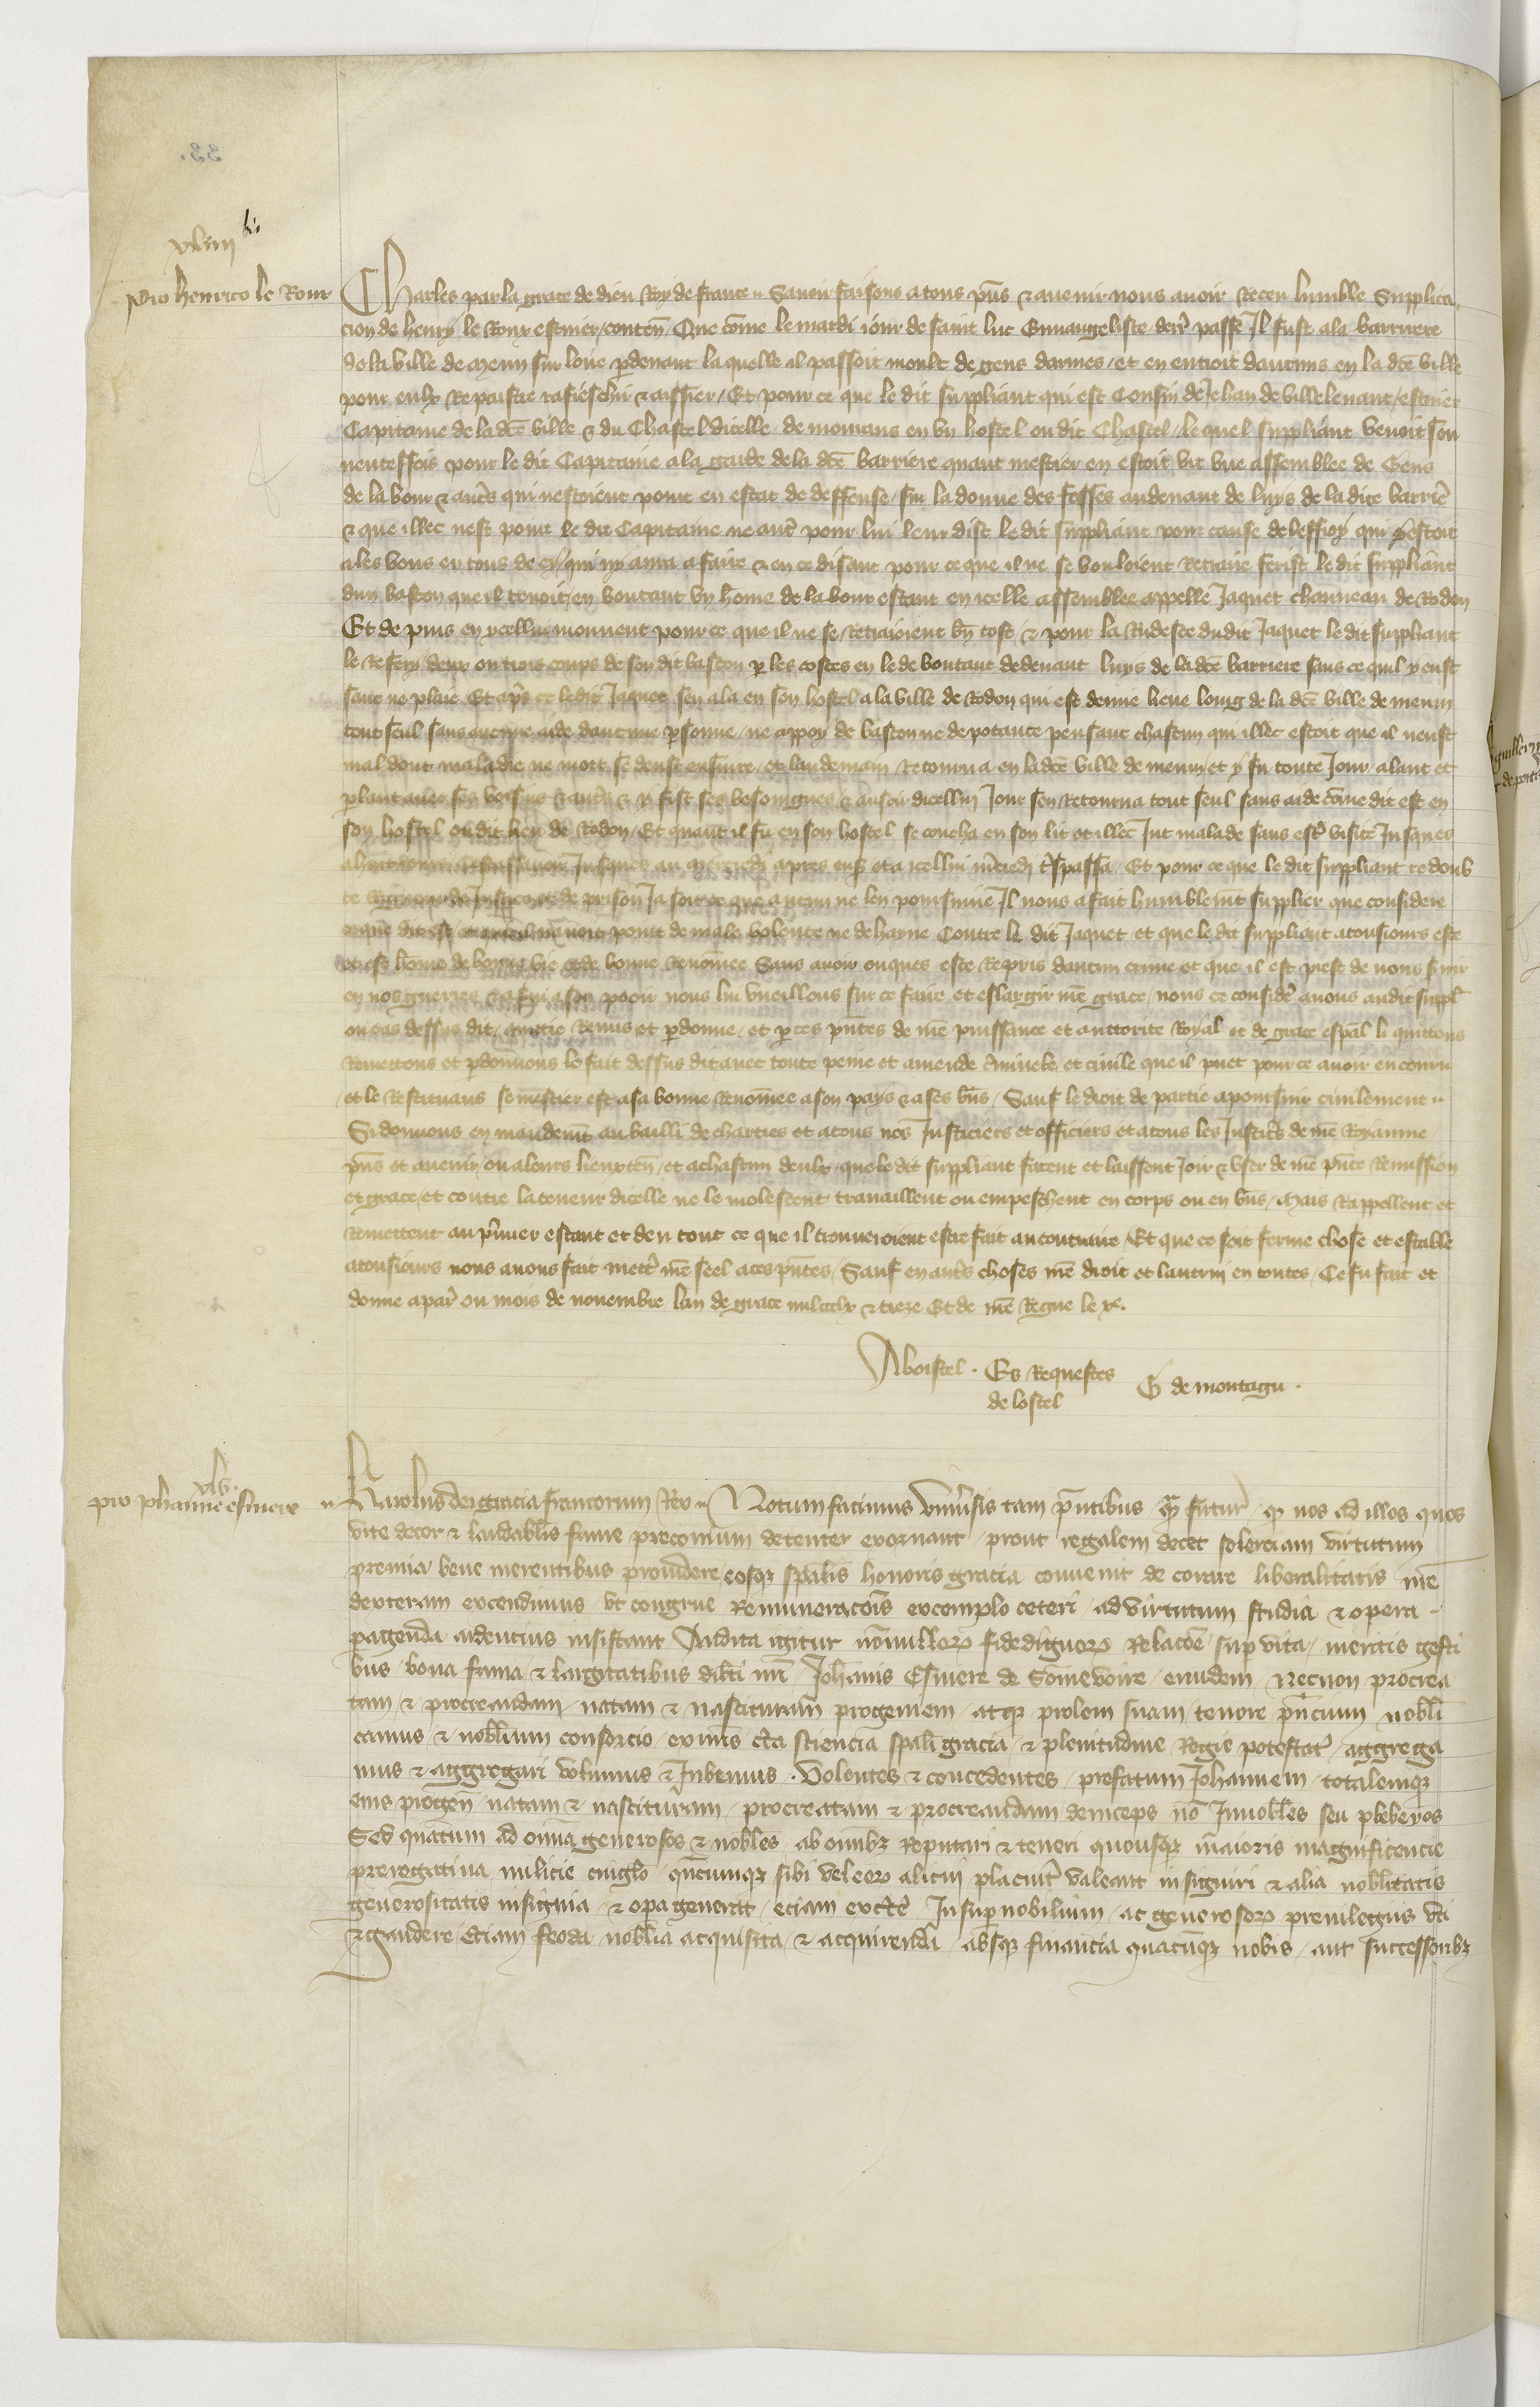 33.
xliiii bis
pro henrico le Roux
Charles par la grace de dieu Roy de france Savoir faisons a tous pñs & avenir nous avoir Receu lumble Supplica
cion de henry le Roux escuier conten Que cõme le mardi iour de saint luc Euuangeliste derr̃ passe Il fust a la barriere
de la ville de Meun sur loire p devant la quelle il passoit moult de gens darmes et en entroit daucuns en la dce ville
pour eulx Repaistre rafreschir & aissier Et pour ce que le dit suppliant qui est Cousin de Jehan de villelenaut escuier
Capitaine de la dce ville & du Chastel dicelle demourans en un hostel ou dit Chastel le quel suppliant venoit sou
ventesfois pour le dit Capitaine a la garde de la dce barriere quant mestier en estoit vit une assemblee de Gens
de labour & autrs qui nestoient point en estat de deffense sur la donue des fosses au devant de luys de la dite barrie
& que illec nest point le dit Capitaine ne autr pour lui leur dist le dit suppliant pour cause de leffroy qui y estoit
ales vous en tous de cy qui ny aura a faire & en ce disant pour ce que il ne se vouloient Retraire ferist le dit suppliant
dun baston que il tenoit en boutant un hõme de labour estant en icelle assemblee appelle Jaquet chauueau de Rodon
Et de puis en ycellui mouvent pour ce que il ne se Retraioient bñ tost & pour la Rudesce du dit Jaquet le dit suppliant
le Refery deux ou trois coups de son dit baston p les costes en le deboutant dedevant luys de la dce barriere sans ce quil y eust
sanc ne plaie Et aps ce le dit Jaquet sen ala en son hostel a la ville de Rodon qui est demie lieue loing de la dce ville de meun
tout seul sans aucune aide daucune psonne ne appoy de baston ne de potance pensant chascun qui illec estoit que il neust
mal dont maladie ne mort se deust ensuivre et landemain Retourna en la dce ville de meun et y fu toute Jour alant et
plant avec ses voisins & autrs & y fist ses besoingnes & au soir dicellui Jour sen Retourna tout seul sans aide cõme dit est en
son hostel ou dit lieu de Rodon Et quant il fu en son hostel se coucha en son lit et illec Jut malade sans estr visite Jusques
Jusques au mercredi apres ens et a icellui mcredi trspassa Et pour ce que le dit suppliant redoub
te Rigueur de Justice et de prison Ja soit ce que aucun ne len poursuive Il nous a fait humblemt supplier que considere
ce que dit est navoit point de male volence ne de hayne Contre le dit Jaquet et que le dit suppliant a tousiours este
et est hõme de bonne vie et de bonne Renõmee Sans avoir onques este Repris daucun crime et que il est prest de nous suir
en nos guerres a son pooir nous lui vueillons sur ce faire et eslargir nre grace nous ce consider avons au dit suppl
ou cas dessus dit quitie Remis et pdonne et p ces pntes de nre puissance et auttorite Royal et de grace espal li quittons
Remettons et pdonnons le fait dessus dit avec toute peine et amende criminele et civile que il puet pour ce avoir encouru
et le Restituans se mestier est a sa bonne Renõmee a son pays & a ses bñs Sauf le droit de partie a poursuir civilement
Si donnons en mandemt au bailli de chartres et a tous nos Justiciers et officiers et a tous les Justicrs de nre Royaume
pñs et avenir ou a leurs lieuxten et a chascun deulx que le dit suppliant facent et laissent Joir & user de nre pnte Remission
et grace et contre la teneur dicelle ne le molestent travaillent ou empeschent en corps ou en bñs Mais Rappellent et
Remettent au pmier estaut et deu tout ce que il trouveroient estre fait au contraire Et que ce soit ferme chose et estable
a tousiours nous avons fait mettr nre seel a ces pntes Sauf en autrs choses nre droit et lautrui en toutes Ce fu fait et
donne a par ou mois de novembre lan de grace mil ccc lx & treze Et de nre Regne le xe.
A boistel . Es Requestes de lostel G de montagu .
xlv.
pro Johanne esmere
Karolus dei gracia francorum Rex Notum facimus universis tam pntibus qm futur q nos ad illos quos
vite decor & laudablis fame preconium decenter exornant prout regalem decet solerciam virtutum
premia bene merentibus providere eosq spalis honoris gracia convenit decorare liberalitatis nre
dexteram excendimus ut congrue Remuneracois excomplo ceteri ad virtutum studia & opera
pagenda ardencius insistant Audita igitur nonullor fidedignor Relacoe sup vita meritis gesti
bus bona fama & largitatibus dilcti nri Johanis Esmere de Sõmevoire eiusdem Necnon procrea
tam & procreandam natam & nascituram progeniem atq prolem suam tenore pncium nobli
camus & noblium consorcio ex nris crta sciencia spali gracia & plenitudine Regie potestatis aggrega
mus & aggregari volumus & Jubemus . Volentes & concedentes prefatum Johannem totalemq
eius progen natam & nascituram procreatam & procreandam deinceps no Innobles seu plebeyos
Sed quatum ad oinia generosos & nobles ab omibz Reputari & teneri quousq maioris magnificencie
prerogativa milicie cinglo quicumq sibi vel eor alicui placuit valeant insigniri & alia noblitatis
generositatis insignia & opa generat eciam exerc̃e Insup nobilium ac generosor privilegiis uti
& gaudere Eciam feoda noblia acquisita & acquirenda absq financia quacuq nobis aut successoribz